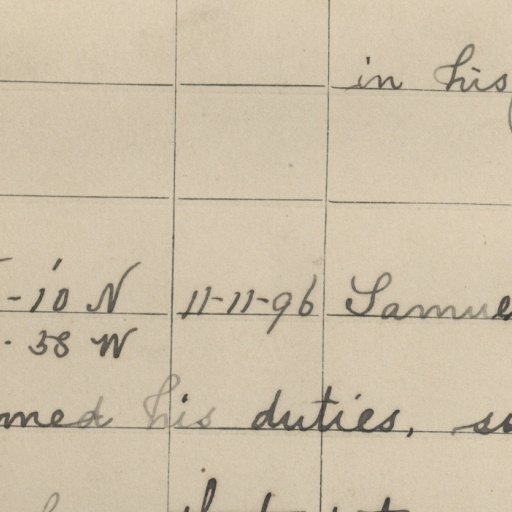 in his
-10 N 11-11-96 Samue
. 38 W
med his duties, su